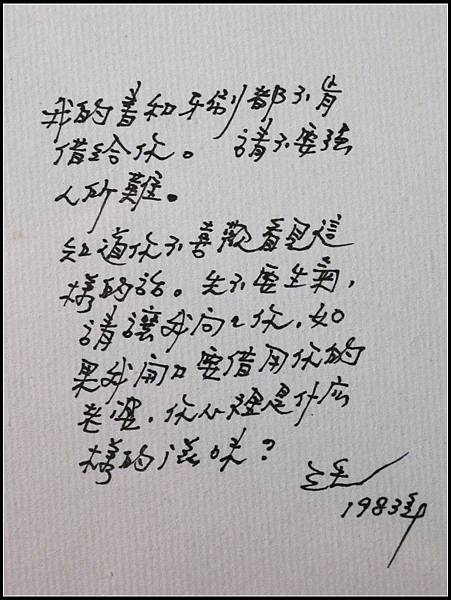 我的書和牙刷都不肯
借給你。 請不要強
人所難。
知道你不喜歡看見這
樣的話。先不要生氣,
請讓我問々你,如
果我開口要借用你的
老婆,你心裡是什么
樣的滋味?
三毛
1983年